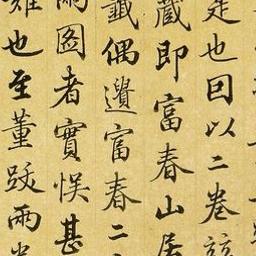 是也因以二卷該
藏即富春山居
籤偶遺富春二
圖者實悞甚
難也至董跋兩卷